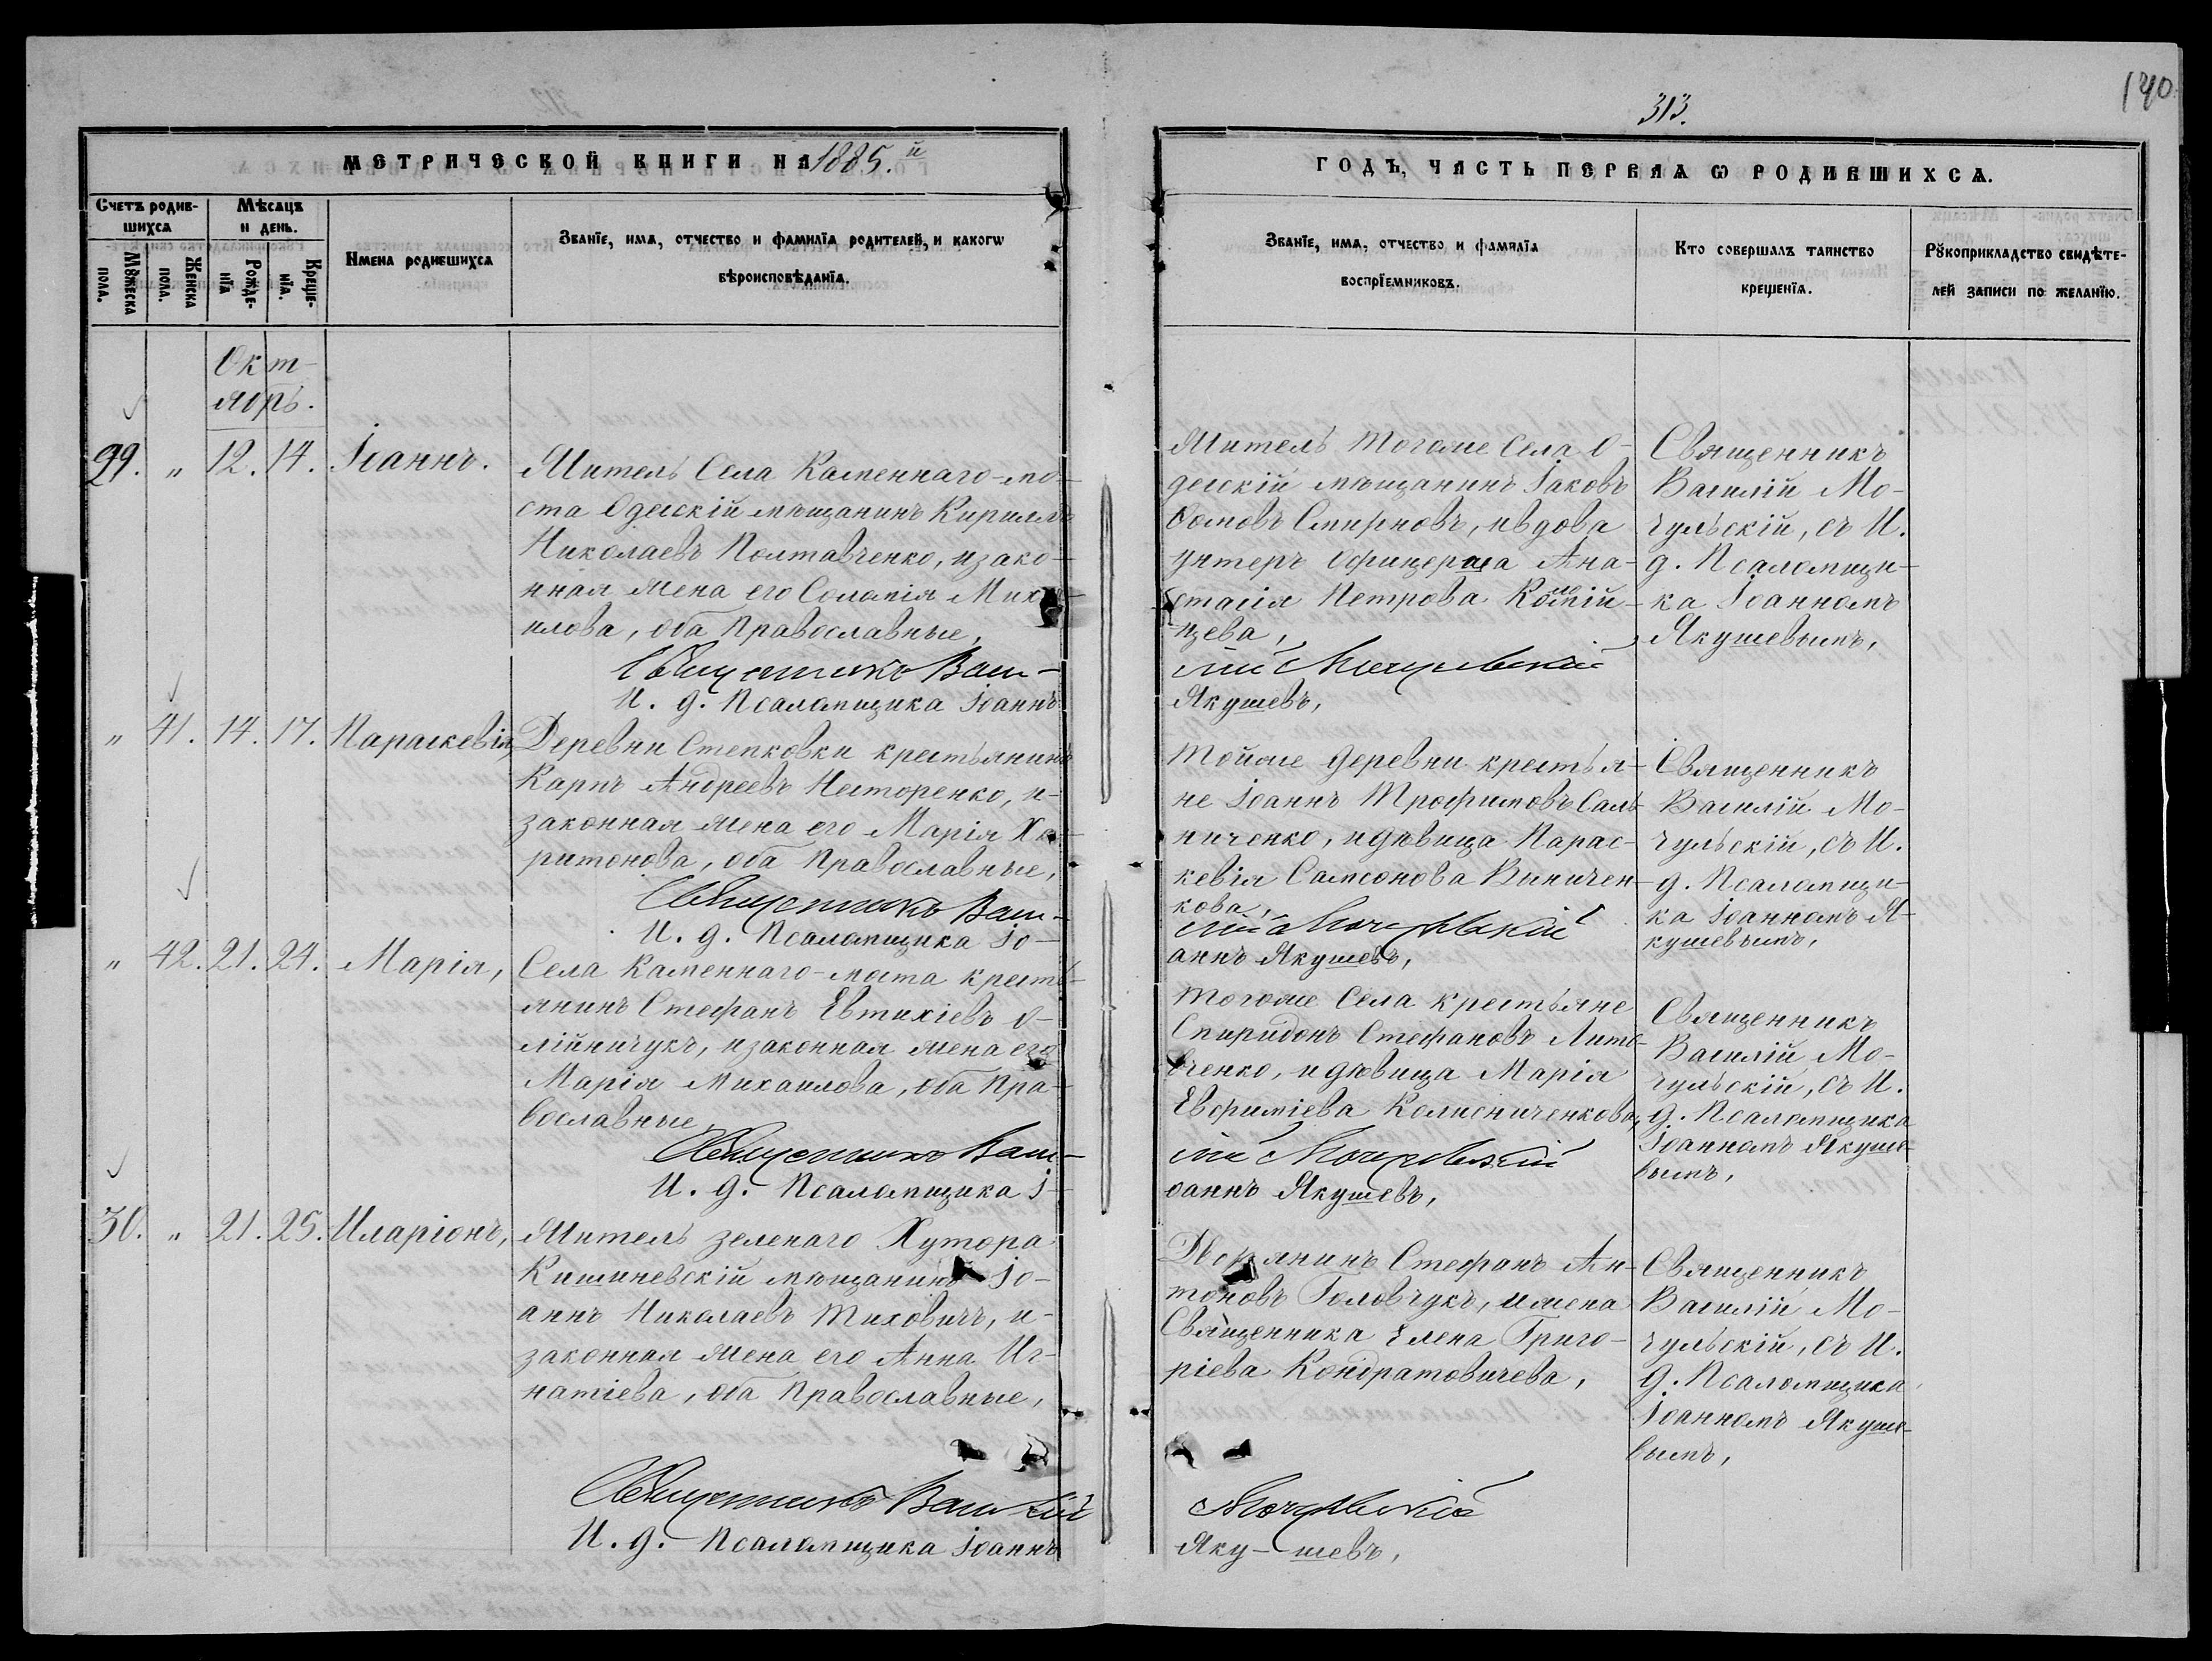 313.
140.
МЕТРИЧЕСКОЙ КНИГИ НА 1885.й
ГОДЪ, ЧАСТЬ ПЕРВАЯ Ѡ РОДИВШИХСѦ.
Счетъ родив-
шихсѧ
Мѣсѧцъ
и день.
Имена родившихсѧ
Званїе, имѧ, отчество и фамилїѧ родителей, и какогѡ
вѣроисповѣданїѧ.
Мꙋжеска
пола.
Женска
пола.
Рожде-
нїѧ
Креще-
нїѧ.
Званїе, имѧ, отчество и фамилїѧ
воспрїемниковъ.
Кто совершалъ таинство
крещенїѧ.
Рꙋкоприкладство свидѣте-
лей записи по желанїю.
Окт-
ябрь.
99. " 12. 14. Іоаннъ.
Житель Села Каменнаго-мо-
ста Одесскій мѣщанинъ Кириллъ
Николаевъ Полтавченко, изако-
нная жена его Соломія Миха-
илова, оба Православные,
Священникъ Васи-
И. д. Псаломщика Іоаннъ
Житель тогоже Села О-
десскій мѣщанинъ Іаковъ
Ѳомовъ Смирновъ, ивдова
унтеръ Офицерша Ана-
стасія Петрова
цева,
лій Мочульскій
Якушевъ,
Священникъ
Василій Мо-
чульскій, съ И.
д. Псаломщи-
ка Іоанномъ
Якушевымъ,
" 41. 14. 17. Параскевія,
Деревни Степковки крестьянинъ
Карпъ Андреевъ Несторенко, и-
законная жена его Марія Ха-
ритонова, оба Православные,
Священникъ Васи-
И. д. Псаломщика Іо-
Тойже деревни крестья-
не Іоаннъ Трофимовъ Саль-
ниченко, идѣвица Парас-
кевія Самсонова Винничен-
кова,
лій Мочульскій
аннъ Якушевъ,
Священникъ
Василій Мо-
чульскій, съ И.
д. Псаломщи-
ка Іоанномъ Я-
кушевымъ,
" 42. 21. 24. Марія,
Села Каменнаго-моста кресть-
янинъ Стефанъ Евтихіевъ О-
лійничукъ, изаконная жена его
Марія Михаилова, оба Пра-
вославные,
Священникъ Васи-
И. д. Псаломщика І-
Тогоже Села крестьяне
Спиридонъ Стефановъ Лито-
вченко, идѣвица Марія
Евфиміева
лій Мочульскій
оаннъ Якушевъ,
Священникъ
Василій Мо-
чульскій, съ И.
д. Псаломщика
Іоанномъ Якуше-
вымъ,
30. " 21. 25. Иларіонъ,
Житель зеленаго Хутора
Кишиневскій мѣщанинъ Іо-
аннъ Николаевъ Тиховичъ, и-
законная жена его Анна Иг-
натіева, оба Православные,
Священникъ Василій
И. д. Псаломщика Іоаннъ
Дворянинъ Стефанъ Ан-
тоновъ Головчукъ, ижена
Священника Елена Григо-
ріева Кондратовичева,
Мочульскій
Яку-шевъ,
Священникъ
Василій Мо-
чульскій, съ И.
д. Псаломщика
Іоанномъ Якуше-
вымъ,